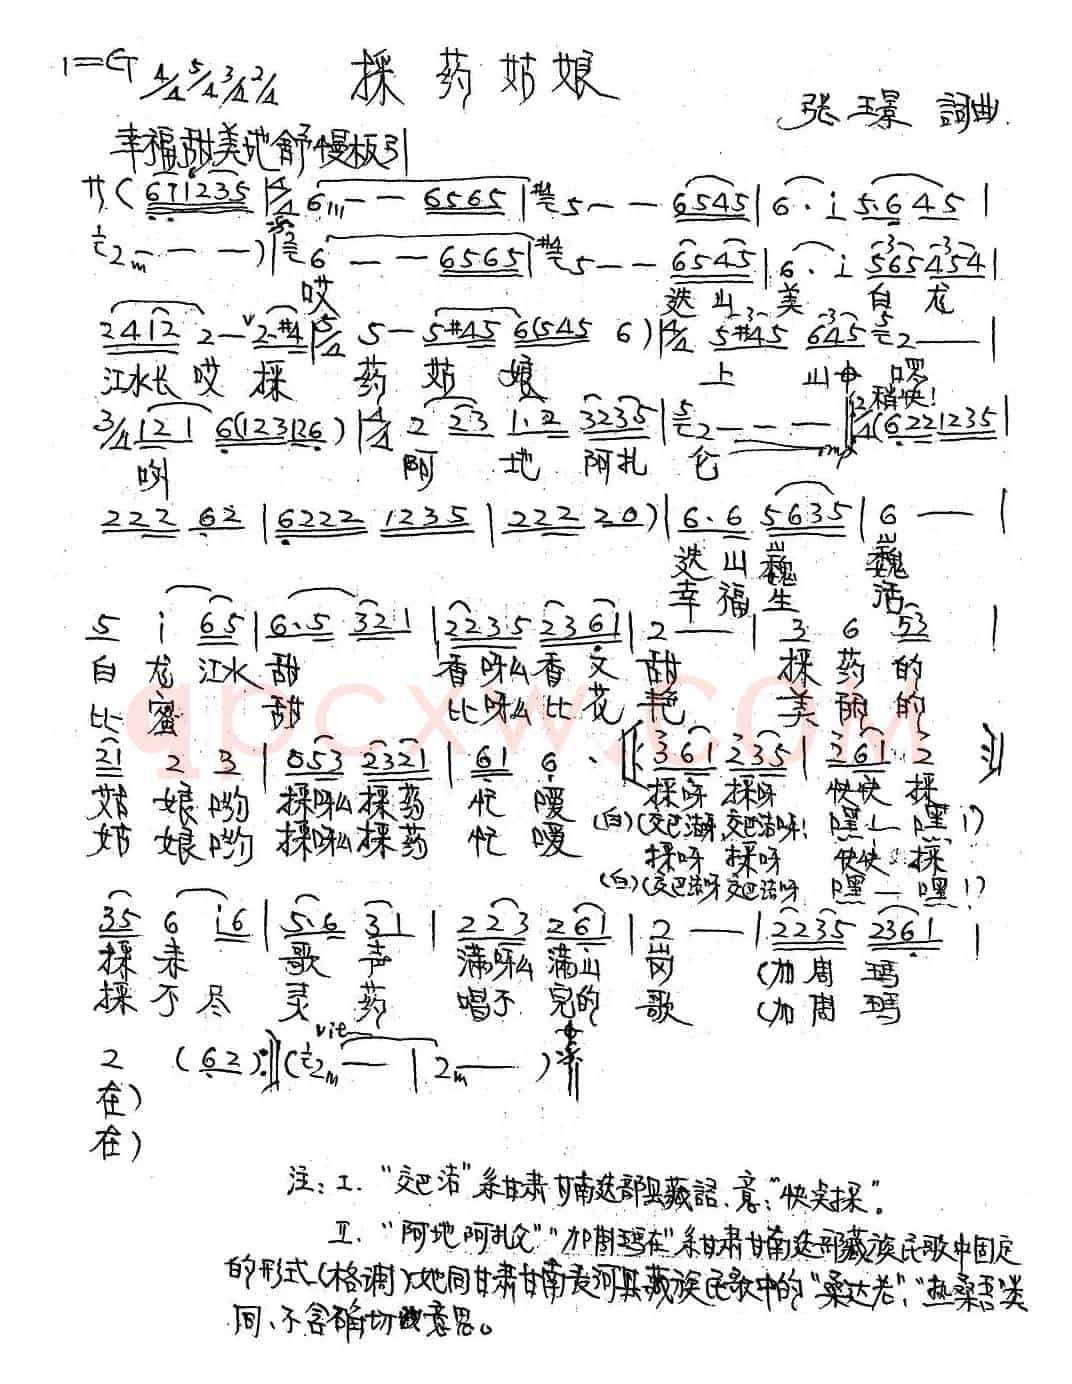 1=G 4/4 5/4 3/4 2/4 採药姑娘
张玉景 詞曲
幸福甜美地 舒慢板引
サ( 671235 | 4/4 6 — — 6565 | 5 — — 6545 | 6· i 5·645 |
2 — — —) | 6 — — 6565 | 5 — — 6545 | 6· i 565 454 |
哎 迭山 美 白 龙
2412 2 — 2·#4 | 5/4 5 — 5#45 6(545 6) | 4/4 5#45 645 2 — — |
江水长 哎 採 药 姑 娘 上 山中 啰
稍快!
3/4 121 6(123126) | 4/4 2 23 1·2 3235 | 2 — — — | 2/4 (6221235 |
咧 阿 地 阿扎 仑
222 62 | 6222 1235 | 222 20) | 6·6 5635 | 6 — |
迭山巍 巍
幸福生 活
5 i 65 | 6·5 321 | 2235 2361 | 2 — | 3 6 53 |
白 龙 江水 甜 香呀么香又 甜 採 药 的
比 蜜 甜 比呀么比花 艳 美 丽 的
21 2 3 | 053 2321 | 61 6· 361 235 | 361 2
姑 娘 哟 採呀么採药 忙 嗳 採呀 採呀 快快 採
姑 娘 哟 採呀么採药 忙 嗳 (白)(交巴洁呀,交巴洁呀! 嘿! — 嘿!)
採呀 採呀 快快 採
(白)(交巴洁呀 交巴洁呀 嘿 — 嘿!)
35 6 i6 | 5·6 31 | 223 261 | 2 — | 2235 2361 |
採 来 歌 声 满呀么满山 岗 (加周 玛
採 不 尽 灵 药 唱不 完的 歌 (加周 玛
2 (62) (2 — | 2 — )
在)
在)
注: I. “交巴洁”系甘肃甘南迭部县藏語,意:“快点採”。
II. “阿地阿扎仑”“加周玛在”系甘肃甘南迭部藏族民歌中固定
的形式(格调)她同甘肃甘南夏河县藏族民歌中的“桑达老”、“热桑吾”类
同、不含确切意思。
qpcxw.com